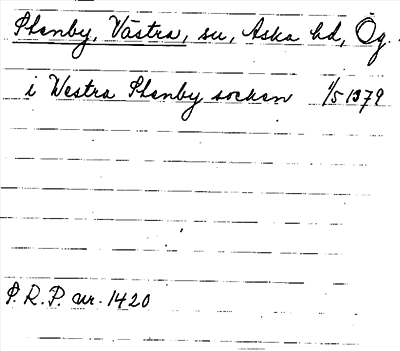 Stenby, Västra, sn, Aska hd, Ög.
i Westra Stenby socken 1/5 1379
P.R.P. nr. 1420